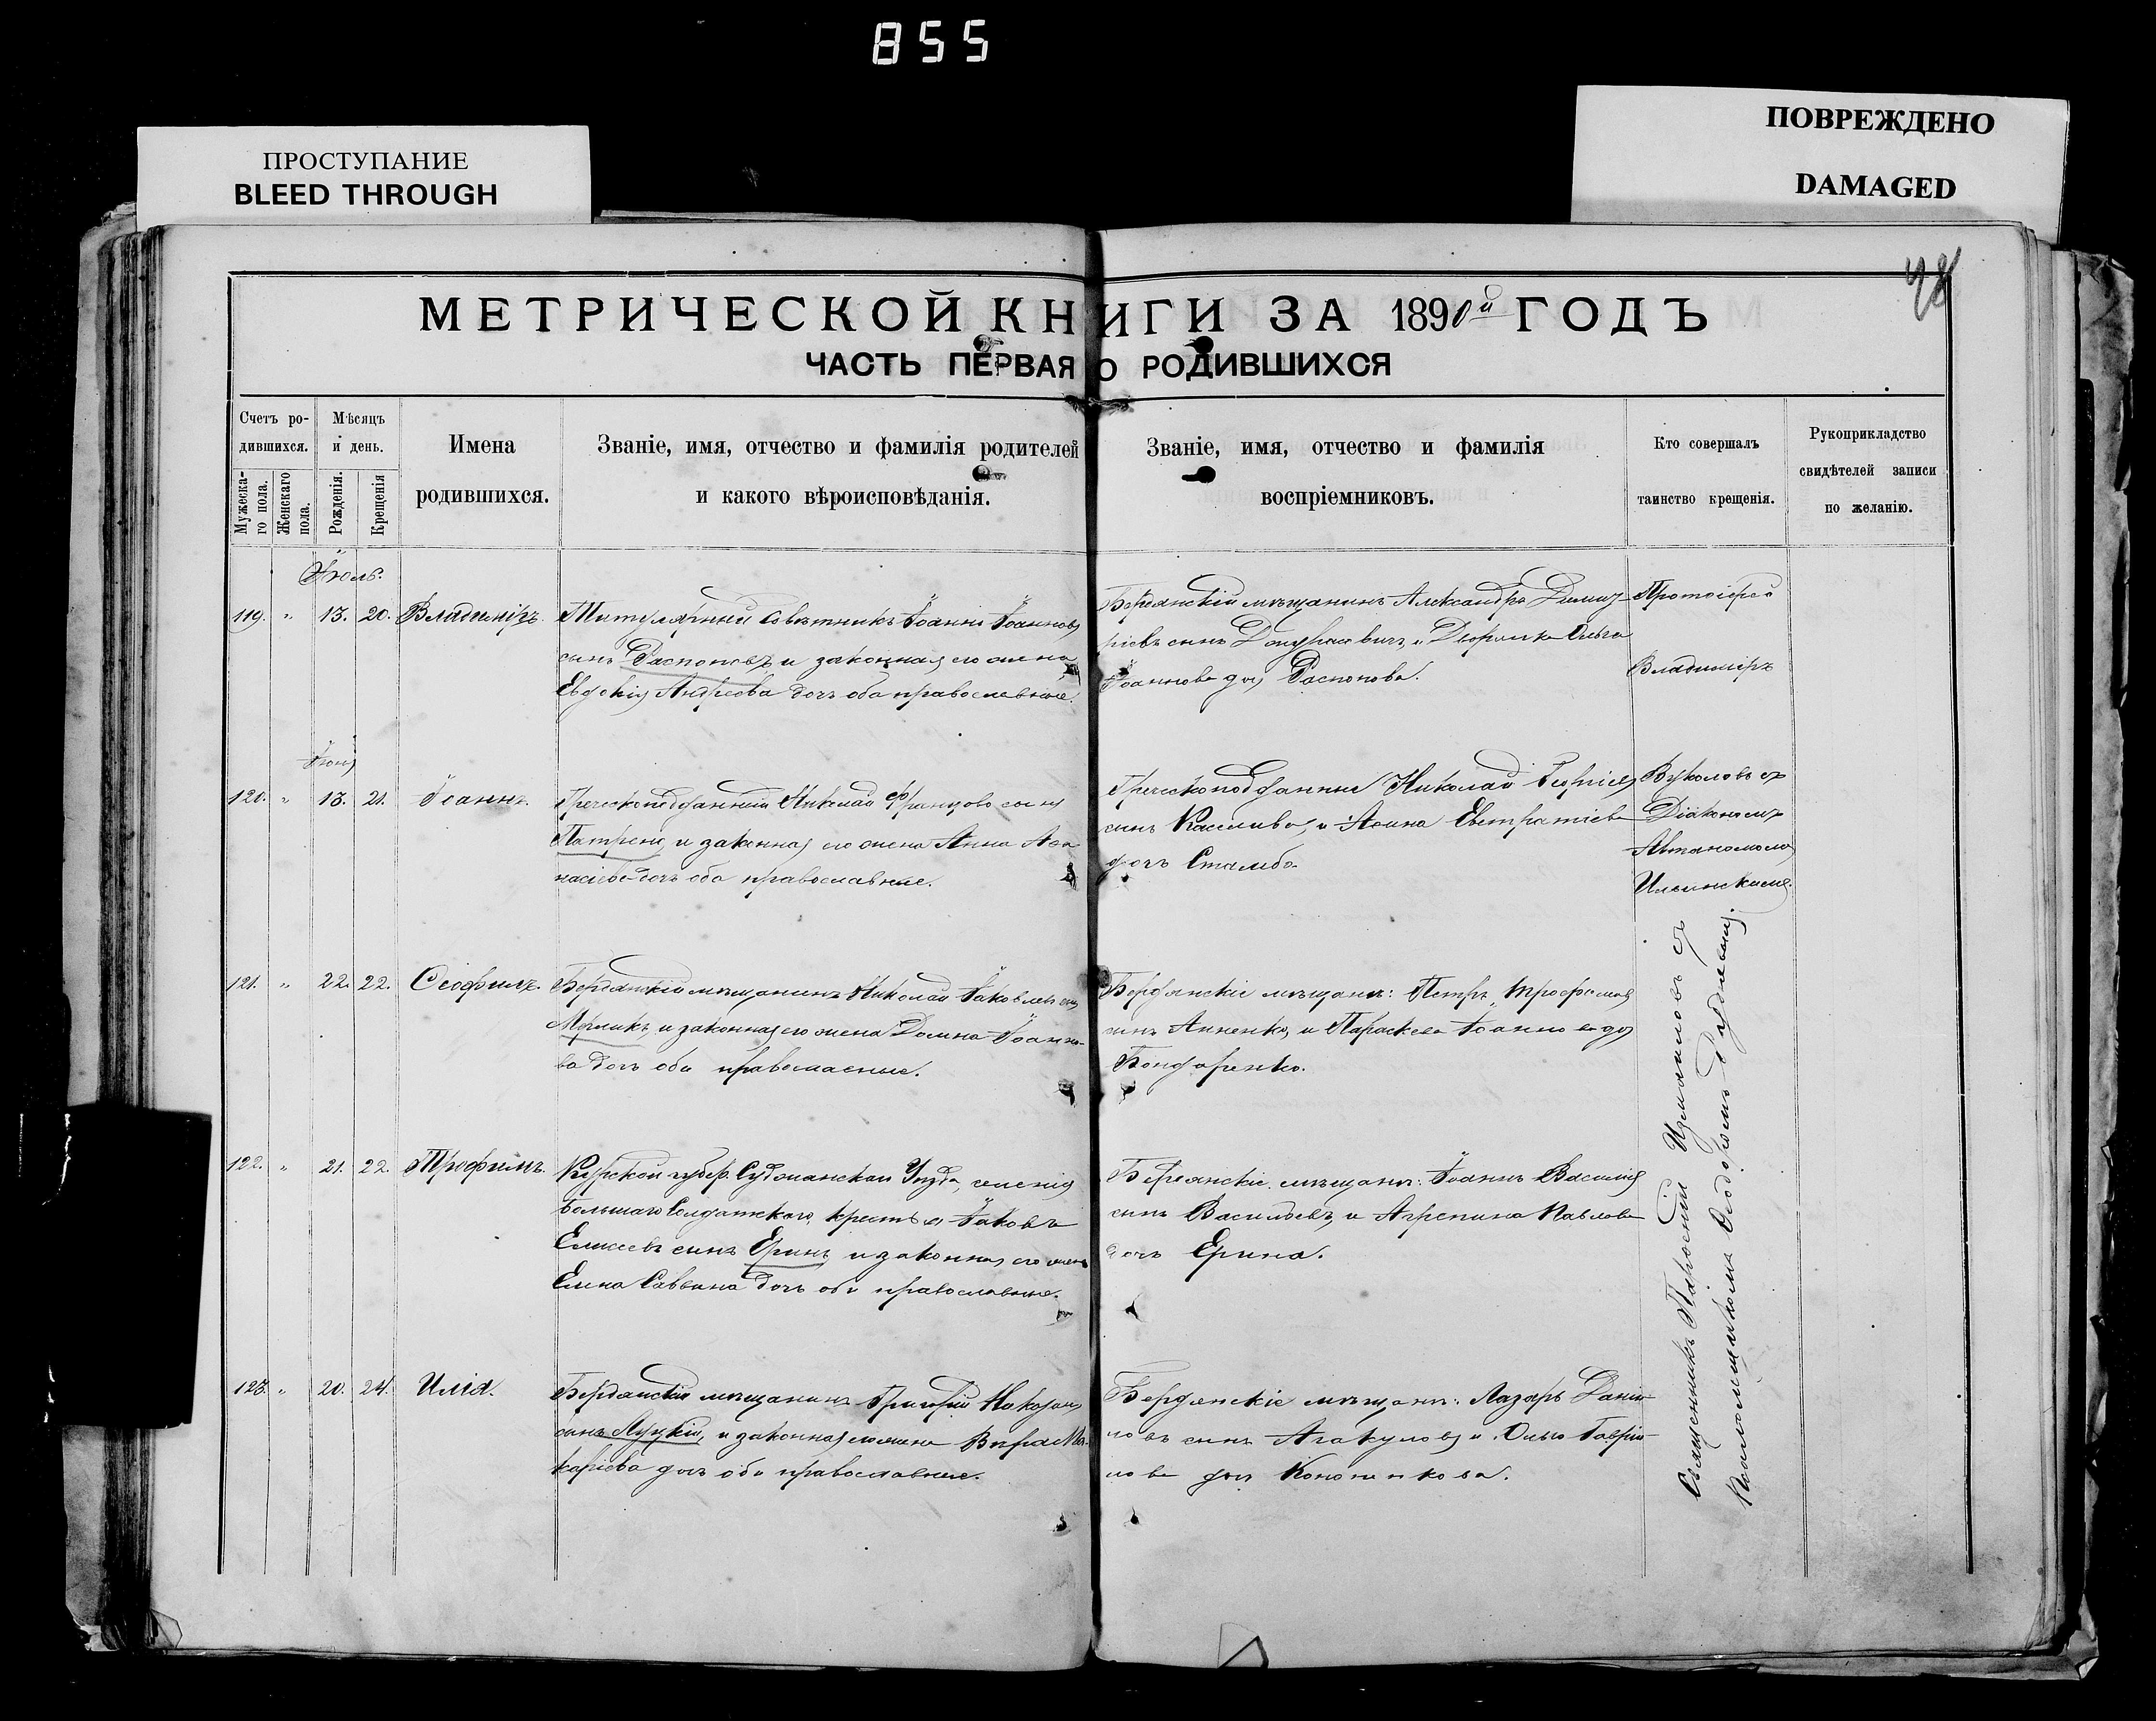 855
ПРОСТУПАНИЕ
BLEED THROUGH
ПОВРЕЖДЕНО
DAMAGED
МЕТРИЧЕСКОЙ КНИГИ ЗА 1890й ГОДЪ
ЧАСТЬ ПЕРВАЯ О РОДИВШИХСЯ
Счетъ ро-
дившихся.
Мужеска-
го пола.
Женскаго
пола.
Мѣсяцъ
и день.
Рожденія.
Крещенія
Имена
родившихся.
Званіе, имя, отчество и фамилія родителей
и какого вѣроисповѣданія.
Званіе, имя, отчество и фамилія
воспріемниковъ.
Кто совершалъ
таинство крещенія.
Рукоприкладство
свидѣтелей записи
по желанію.
Іюль.
119. " 13. 20. Владиміръ.
Титулярный Совѣтникъ Іоаннъ Іоанновъ
сынъ Распоповъ и законная его жена
Евдокія Андреева дочь оба православные.
Бердянскій мѣщанинъ Александръ Димит-
ріевъ сынъ и Дворянка Ольга
Іоаннова доч Распопова.
Протоіерей
Владиміръ
120. " 13. 21. Іоаннъ.
Греческоподданный Николай сынъ
и законная его жена Анна Аѳа-
насіева дочь оба православные.
Греческоподданные Николай Георгіев
сынъ и Анна Евстратіева
дочь Стамбо.
съ
Діакономъ
Ильинскимъ.
121. " 22. 22. Ѳеофилъ.
Бердянскій мѣщанинъ Николай Іаковлевъ сын
и законная его жена Домна Іоанно-
ва дочь оба православные.
Бердянскіе мѣщане: Петръ Трофимов
сынъ Анненко, и Параскева Іоаннова доч
Бондаренко.
122. " 21. 22. Трофимъ.
Курской губер. Суджанскаго Уѣзда, селенія
Большаго Солдатскаго, крест-нъ Іаковъ
Елисеевъ сынъ Еринъ, и законная его жена
Елена Саввина дочь оба православные.
Бердянскіе мѣщане: Іоаннъ Василіев
сынъ Васильевъ, и Агрепина Павлова
дочь Ерина.
123. " 20. 24. Илія.
Бердянскій мѣщанинъ Григорій
сынъ Луцкій, и законная его жена Вѣра Ма-
каріева доч оба православные.
Бердянскіе мѣщане: Лазарь Даніи-
ловъ сынъ Агакуловъ и Ольга Гавріи-
лова доч Кононенкова.
Священникъ Измаиловъ съ
Псаломщикомъ Ѳеодоромъ